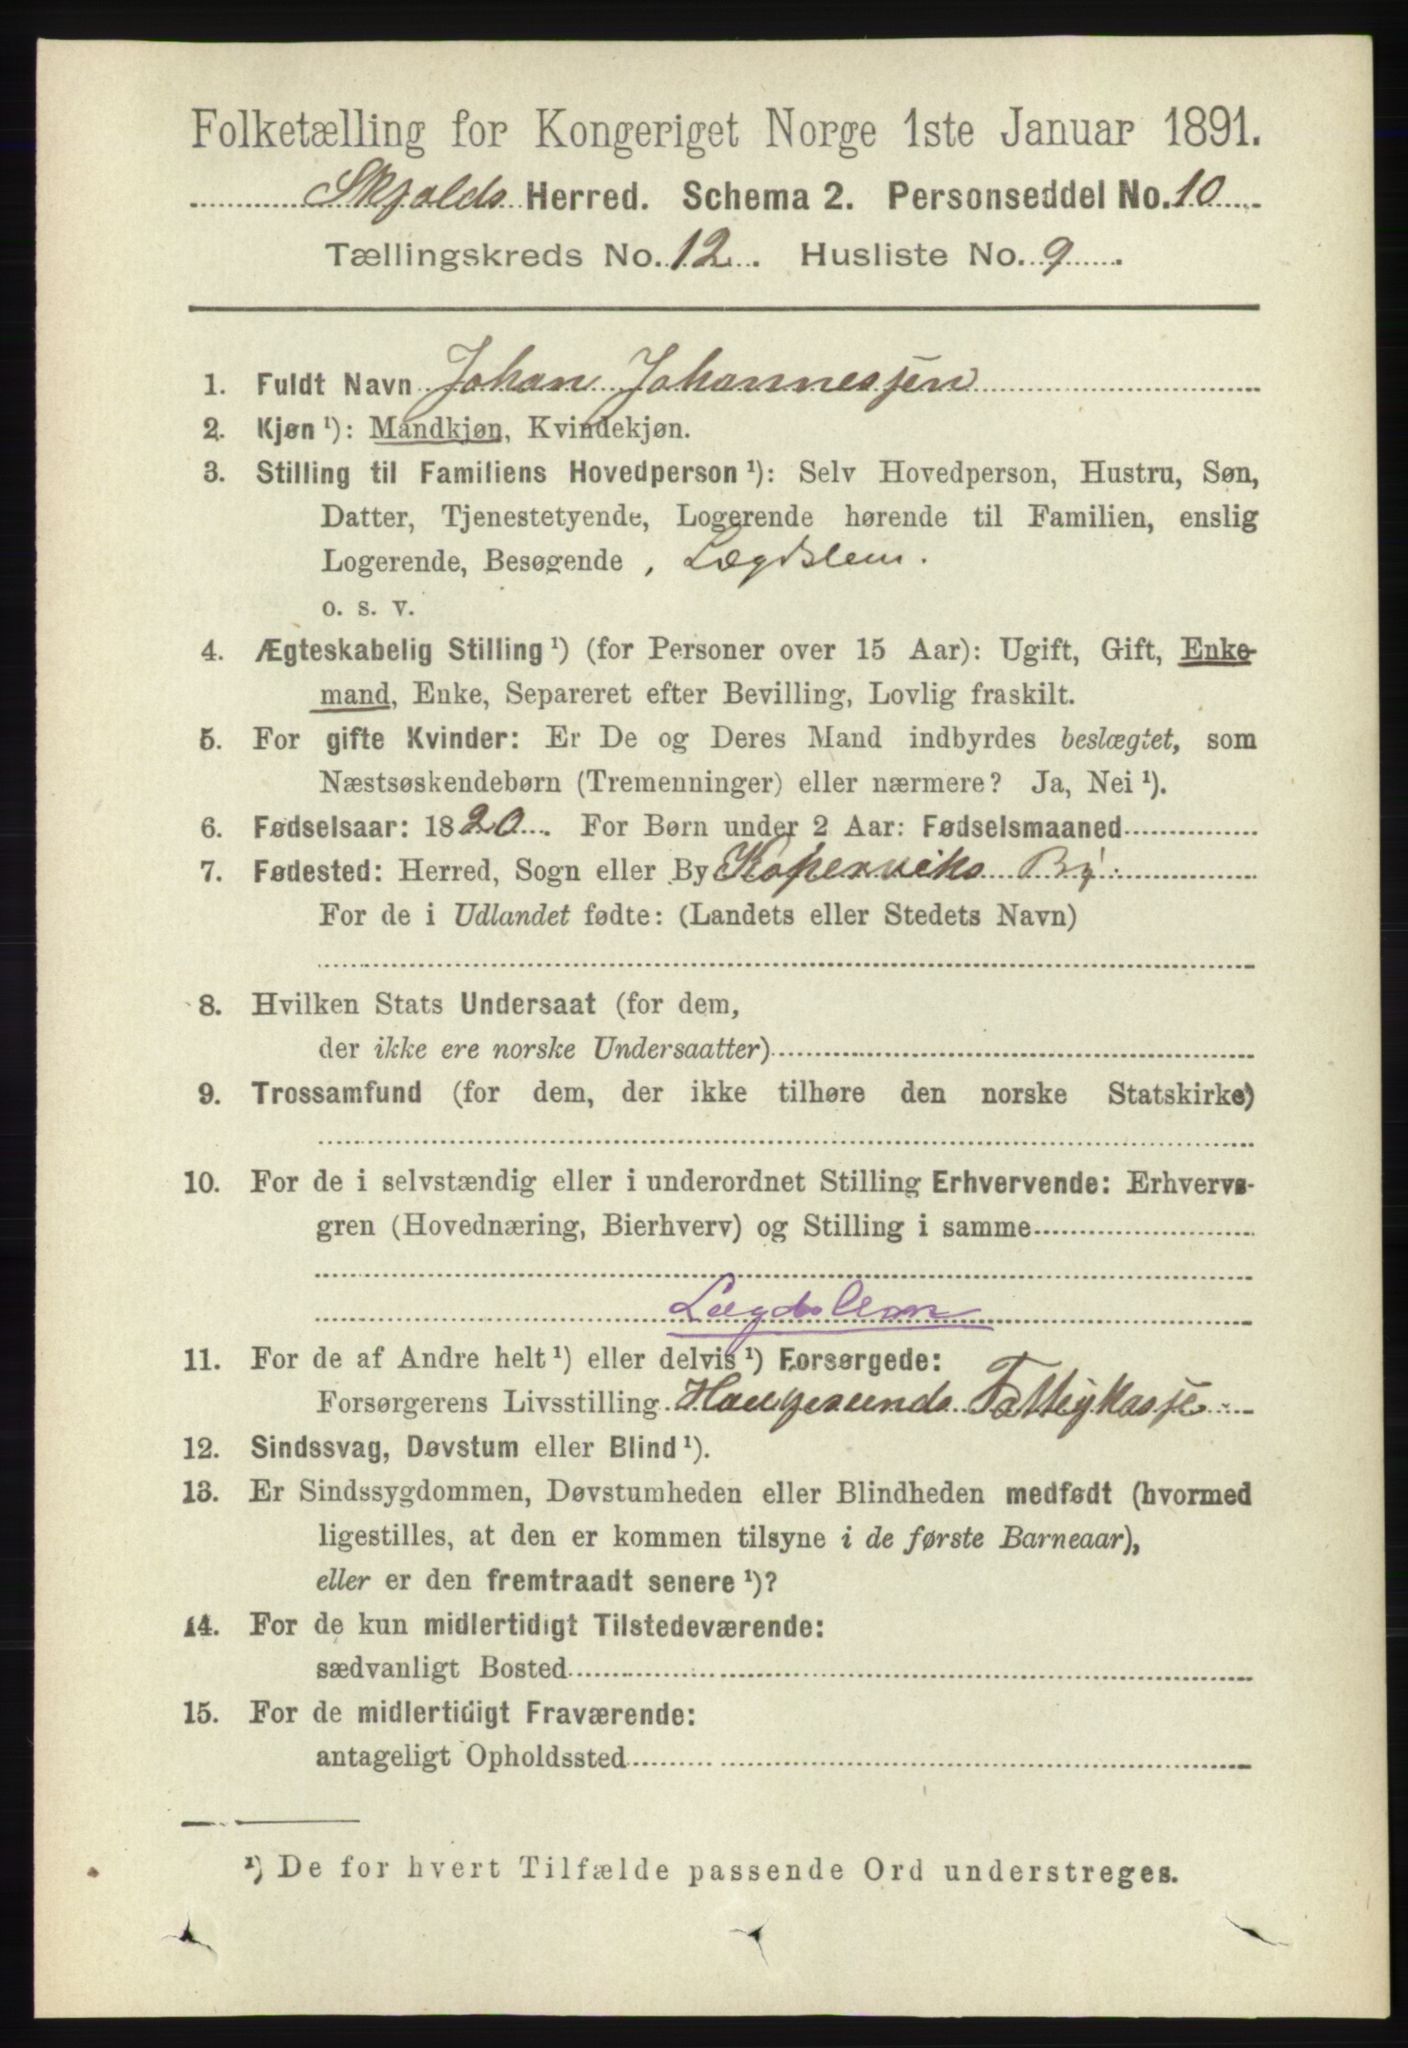 Folketælling for Kongeriget Norge 1ste Januar 1891.
Skjolds Herred. Schema 2. Personseddel No. 10
Tællingskreds No. 12. Husliste No. 9
1. Fuldt Navn Johan Johannessen
2. Kjøn ¹): Mandkjøn, Kvindekjøn.
3. Stilling til Familiens Hovedperson ¹): Selv Hovedperson, Hustru, Søn,
Datter, Tjenestetyende, Logerende hørende til Familien, enslig
Logerende, Besøgende, Lægdslem.
o. s. v.
4. Ægteskabelig Stilling ¹) (for Personer over 15 Aar): Ugift, Gift, Enke-
mand, Enke, Separeret efter Bevilling, Lovlig fraskilt.
5. For gifte Kvinder: Er De og Deres Mand indbyrdes beslægtet, som
Næstsøskendebørn (Tremenninger) eller nærmere? Ja, Nei ¹).
6. Fødselsaar: 1820. For Børn under 2 Aar: Fødselsmaaned
7. Fødested: Herred, Sogn eller By Kopervviks By.
For de i Udlandet fødte: (Landets eller Stedets Navn)
8. Hvilken Stats Undersaat (for dem,
der ikke ere norske Undersaatter)
9. Trossamfund (for dem, der ikke tilhøre den norske Statskirke)
10. For de i selvstændig eller i underordnet Stilling Erhvervende: Erhvervs-
gren (Hovednæring, Bierhverv) og Stilling i samme
Lægdslem
11. For de af Andre helt ¹) eller delvis ¹) Forsørgede:
Forsørgerens Livsstilling Haugesunds Fattigkasse
12. Sindssvag, Døvstum eller Blind ¹).
13. Er Sindssygdommen, Døvstumheden eller Blindheden medfødt (hvormed
ligestilles, at den er kommen tilsyne i de første Barneaar),
eller er den fremtraadt senere ¹)?
14. For de kun midlertidigt Tilstedeværende:
sædvanligt Bosted
15. For de midlertidigt Fraværende:
antageligt Opholdssted
¹) De for hvert Tilfælde passende Ord understreges.